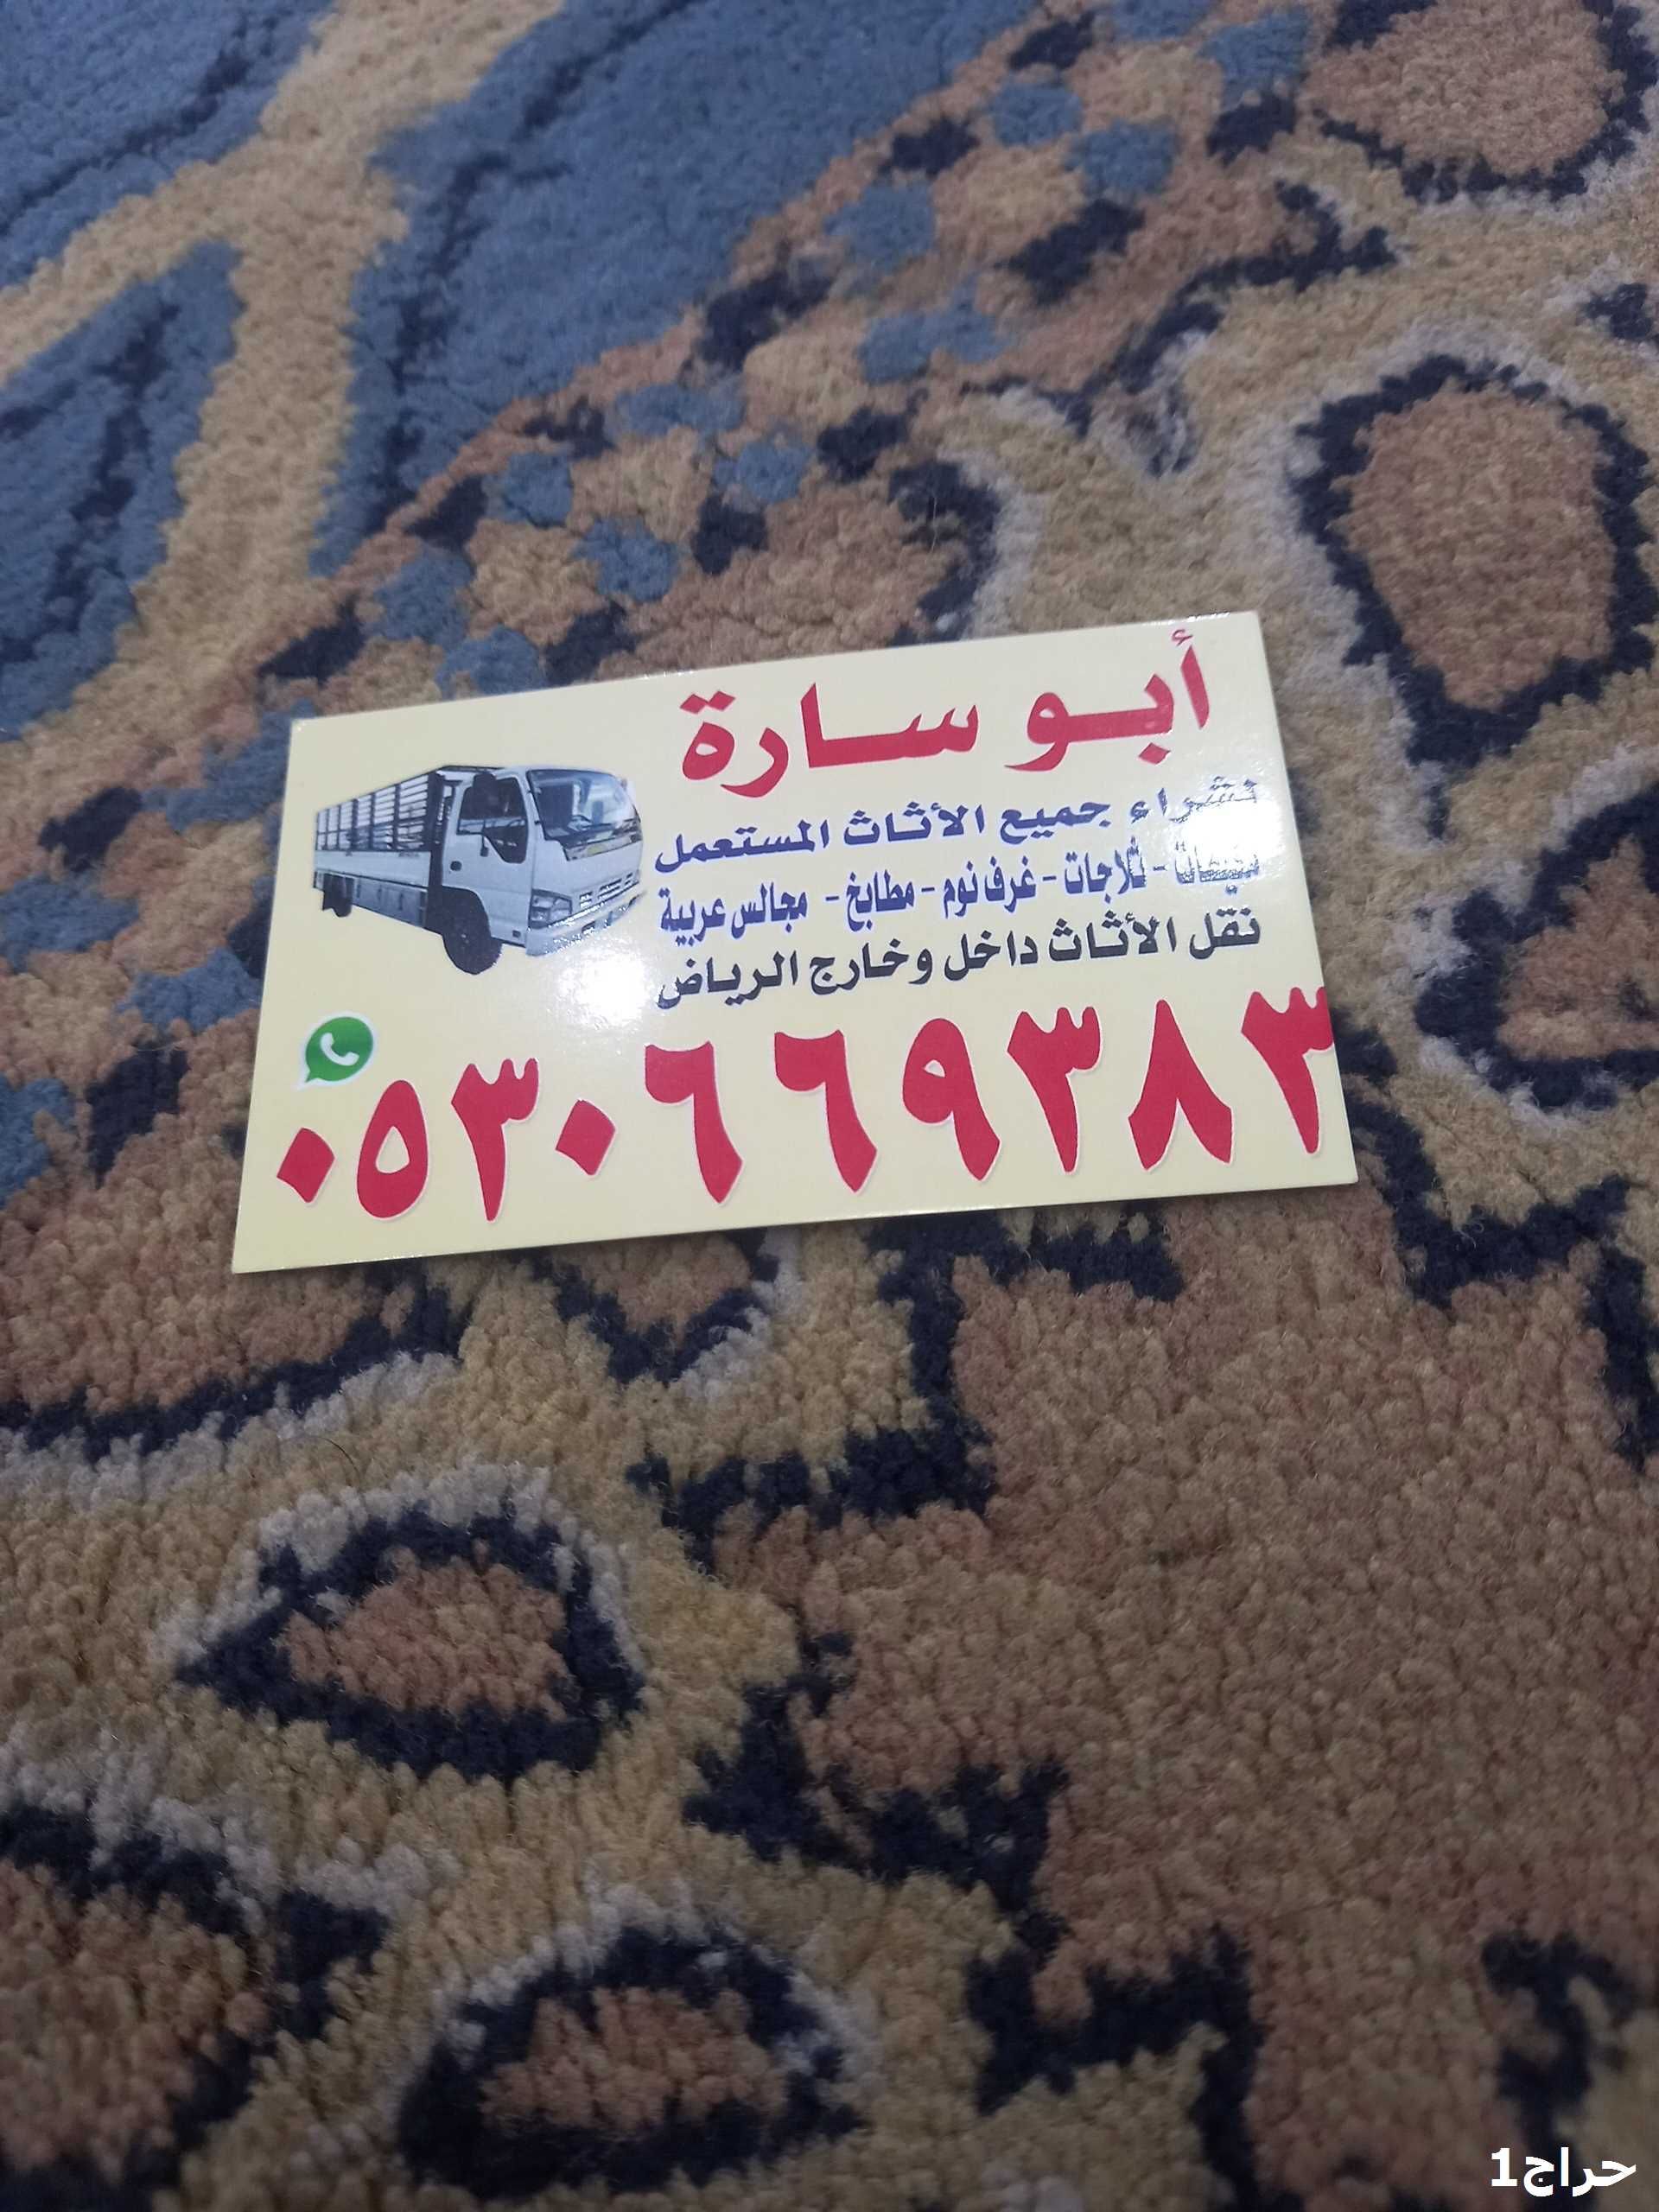 أبو سارة
نشراء جميع الأثاث المستعمل
مكيفات - ثلاجات - غرف نوم - مطابخ - مجالس عربية
نقل الأثاث داخل وخارج الرياض
٠٥٣٠٦٦٩٣٨٣
حراج1